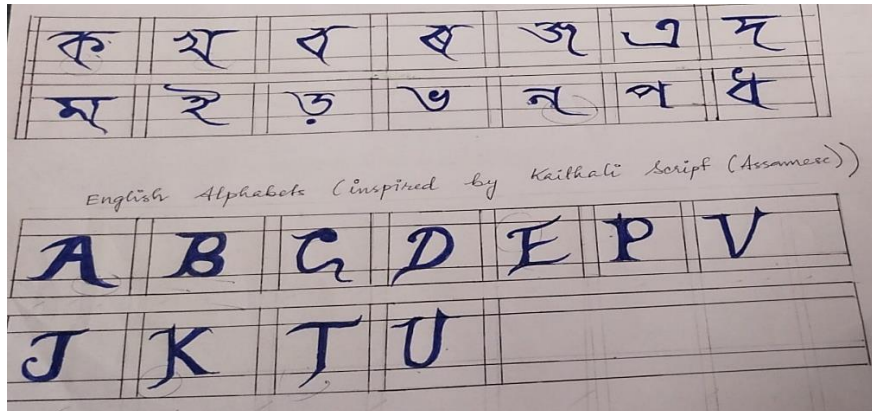 ক খ ব ৰ জ এ দ
ম ই ড় ভ ন প ধ
English Alphabets (inspired by Kaithali Script (Assamese))
A B C D E P V
J K T U